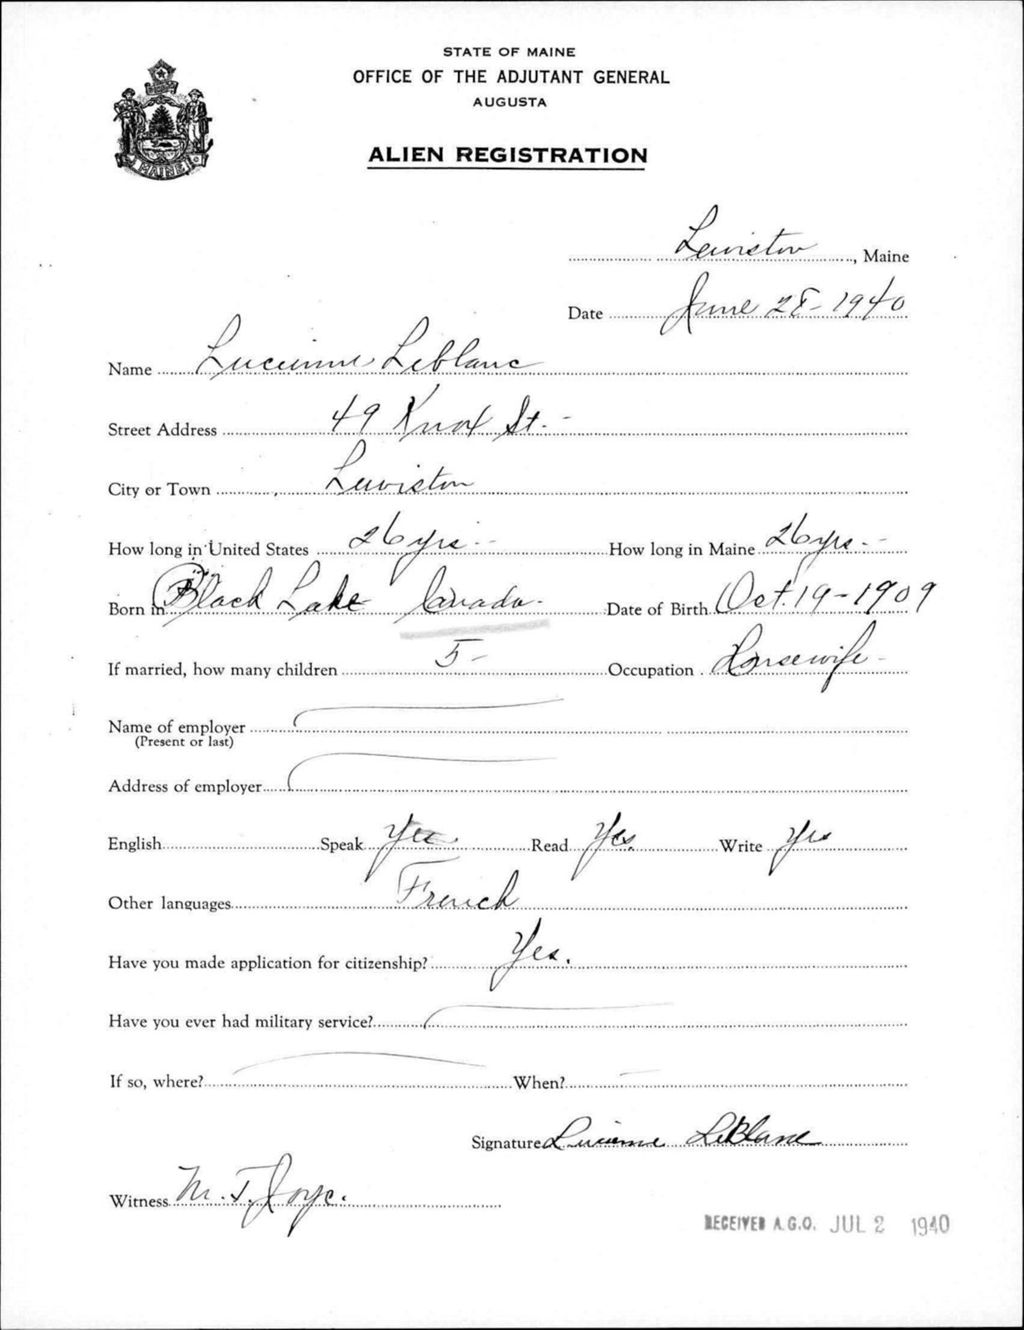 STATE OF MAINE
OFFICE OF THE ADJUTANT GENERAL
AUGUSTA
ALIEN REGISTRATION
MAINE
Lewiston, Maine
Date June 28-1940
Name Lucienne Leblanc
Street Address 49 Knox St.-
City or Town Lewiston
How long in United States 26 yrs.- How long in Maine 26 yrs.-
Born in Black Lake Canada- Date of Birth Oct. 19-1909
If married, how many children 5- Occupation Housewife-
Name of employer
(Present or last)
Address of employer
English Speak Yes Read Yes. Write Yes
Other languages French
Have you made application for citizenship? Yes.
Have you ever had military service?
If so, where? When?
Signature Lucienne LeBlanc
Witness M. T. Joyce.
RECEIVED A.G.O. JUL 2 1940